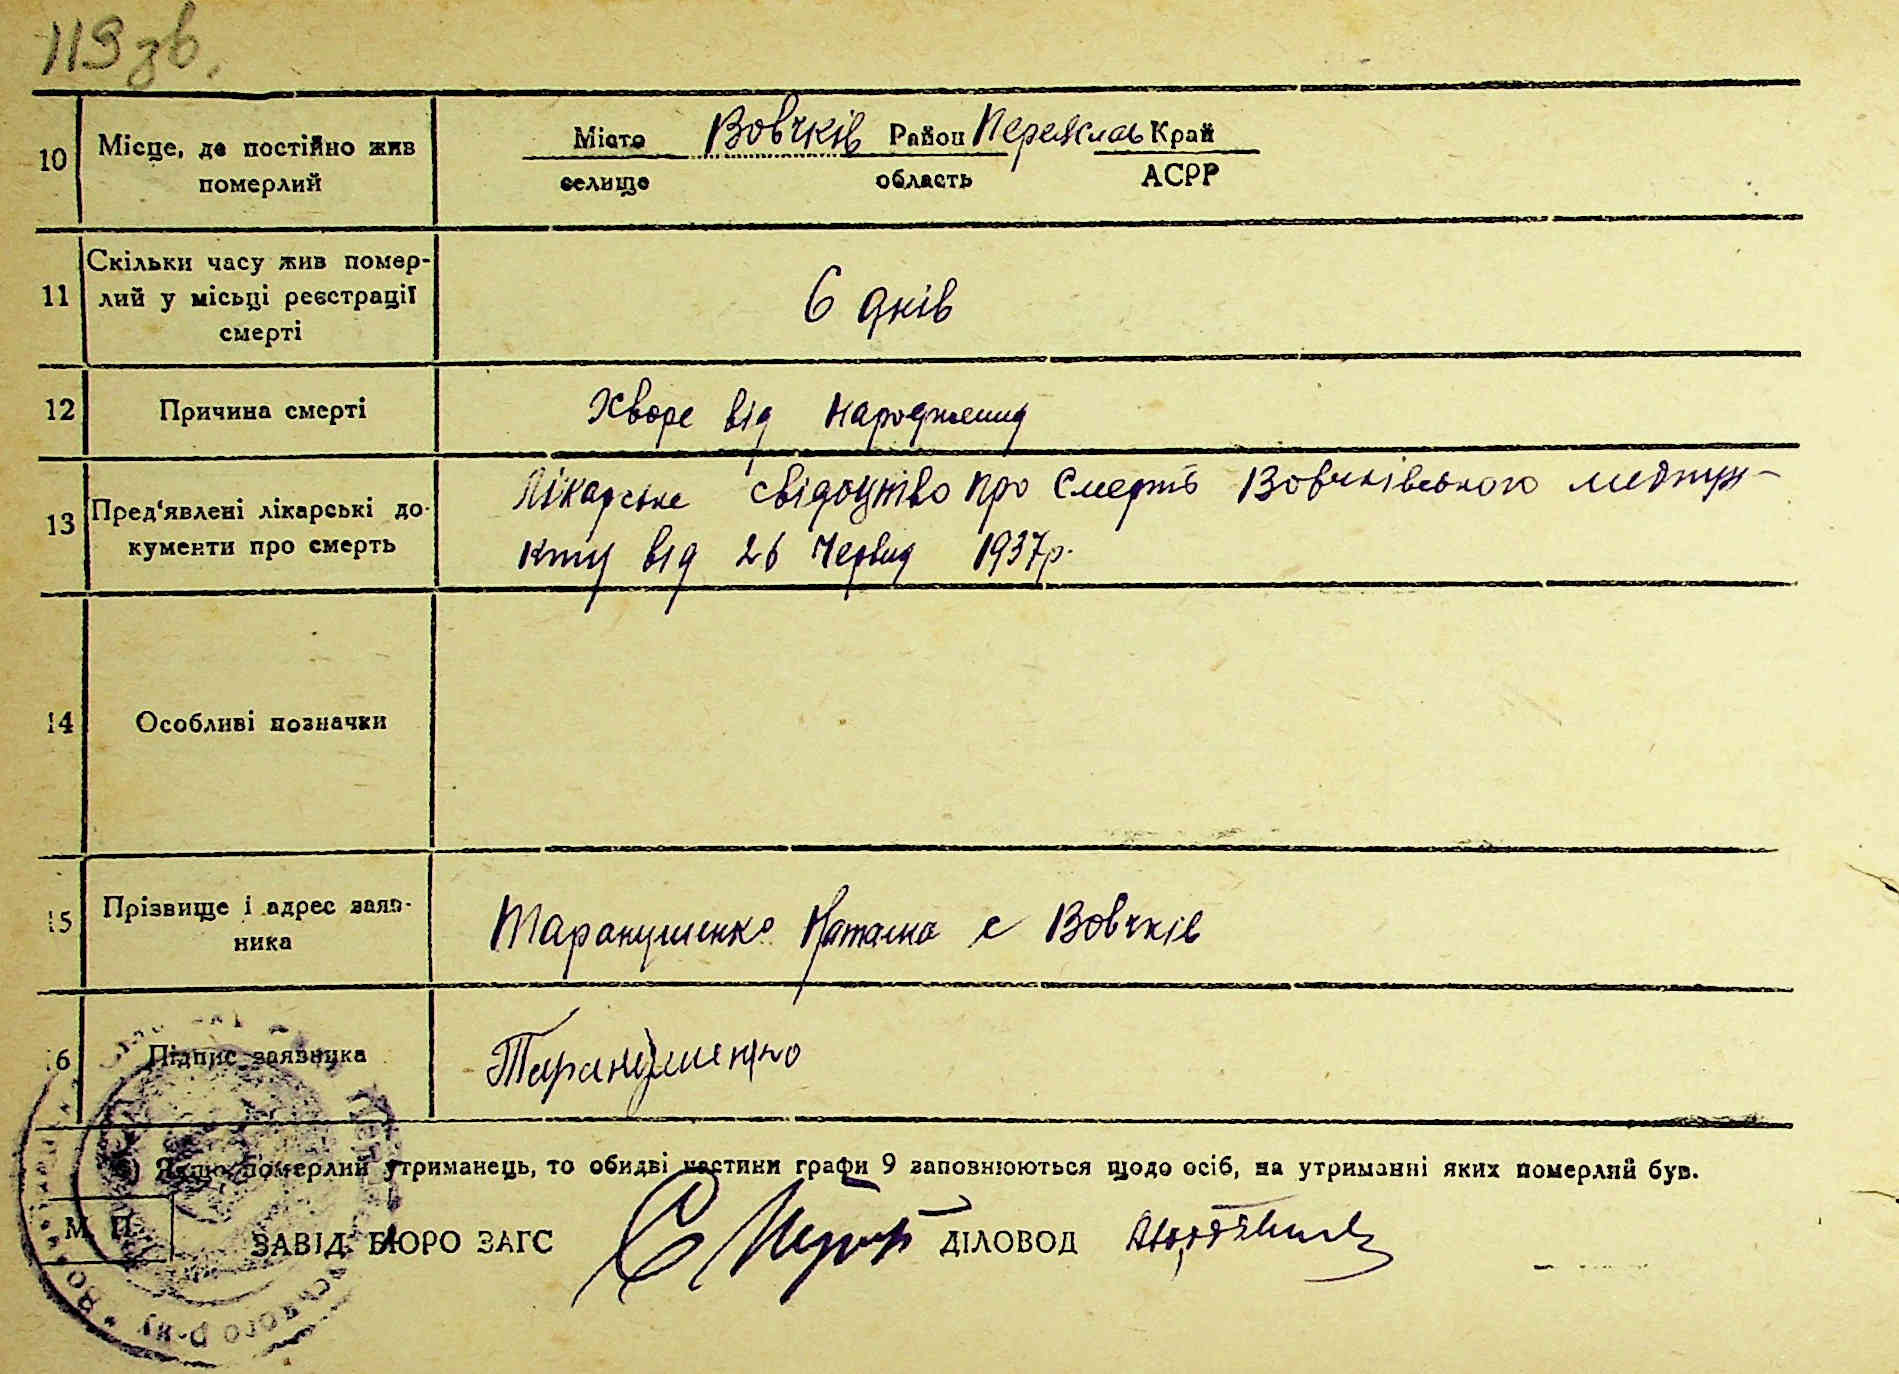 119 зв.
10 Місце, де постійно жив померлий
Місто Вовчків Район Переяслав Край
селище область АСРР
11 Скільки часу жив помер-
лий у місьці реєстрації
смерті
6 днів
12 Причина смерті Хворе від народження
13 Пред'явлені лікарські до-
кументи про смерть
Лікарське свідоцтво про Смерть Вовчківського медпун-
кту від 26 Червня 1937р.
14 Особливі позначки
15 Прізвище і адрес заяв-
ника
Таранушенко Наталка с Вовчків
16 Підпис заявника Таранушенко
*) Якщо померлий утриманець, то обидві частини графи 9 заповнюються щодо осіб, на утриманні яких померлий був.
М. П.
ЗАВІД. БЮРО ЗАГС ДІЛОВОД
ського р-ну